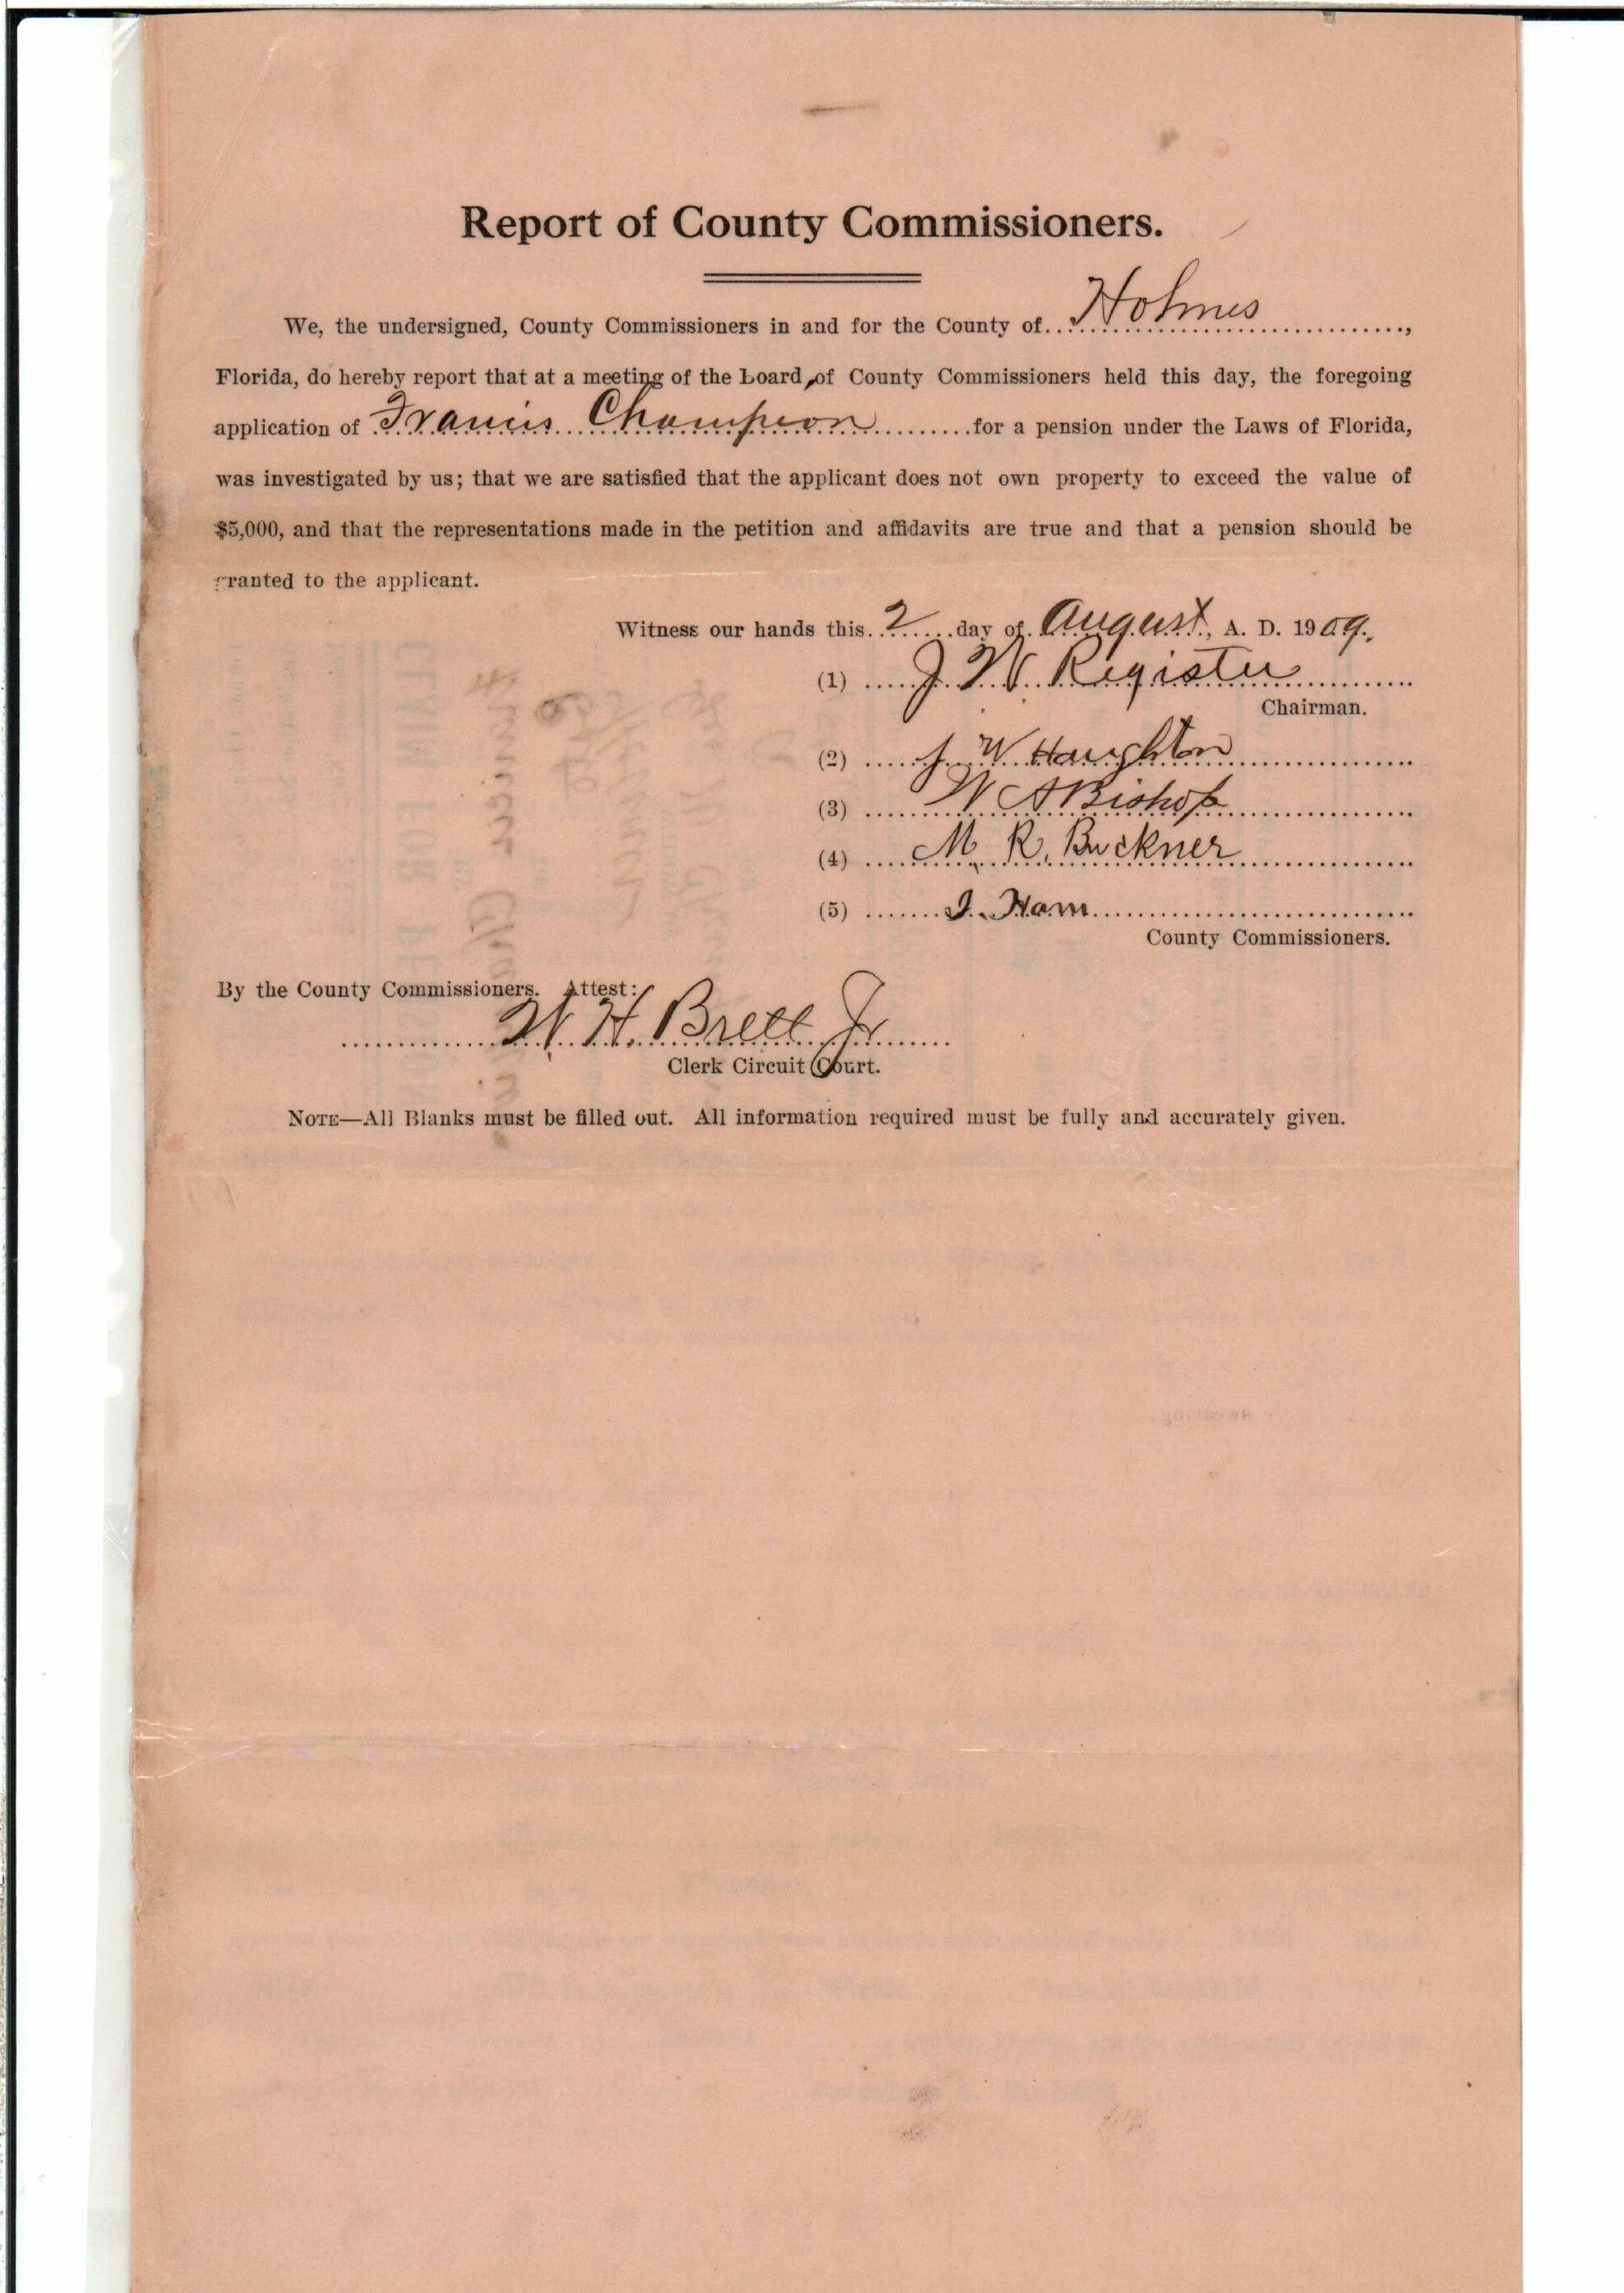 Report of County Commissioners.
We, the undersigned, County Commissioners in and for the County of Holmes,
Florida, do hereby report that at a meeting of the Board of County Commissioners held this day, the foregoing
application of Francis Champion for a pension under the Laws of Florida,
was investigated by us; that we are satisfied that the applicant does not own property to exceed the value of
$5,000, and that the representations made in the petition and affidavits are true and that a pension should be
granted to the applicant.
Witness our hands this 2 day of August, A. D. 1909.
(1) J. W. Register
Chairman.
(2) J. W. Haughton
(3) W A Bishop
(4) M. R. Buckner
(5) I. Ham
County Commissioners.
By the County Commissioners. Attest:
W. H. Brett Jr
Clerk Circuit Court.
NOTE—All Blanks must be filled out. All information required must be fully and accurately given.